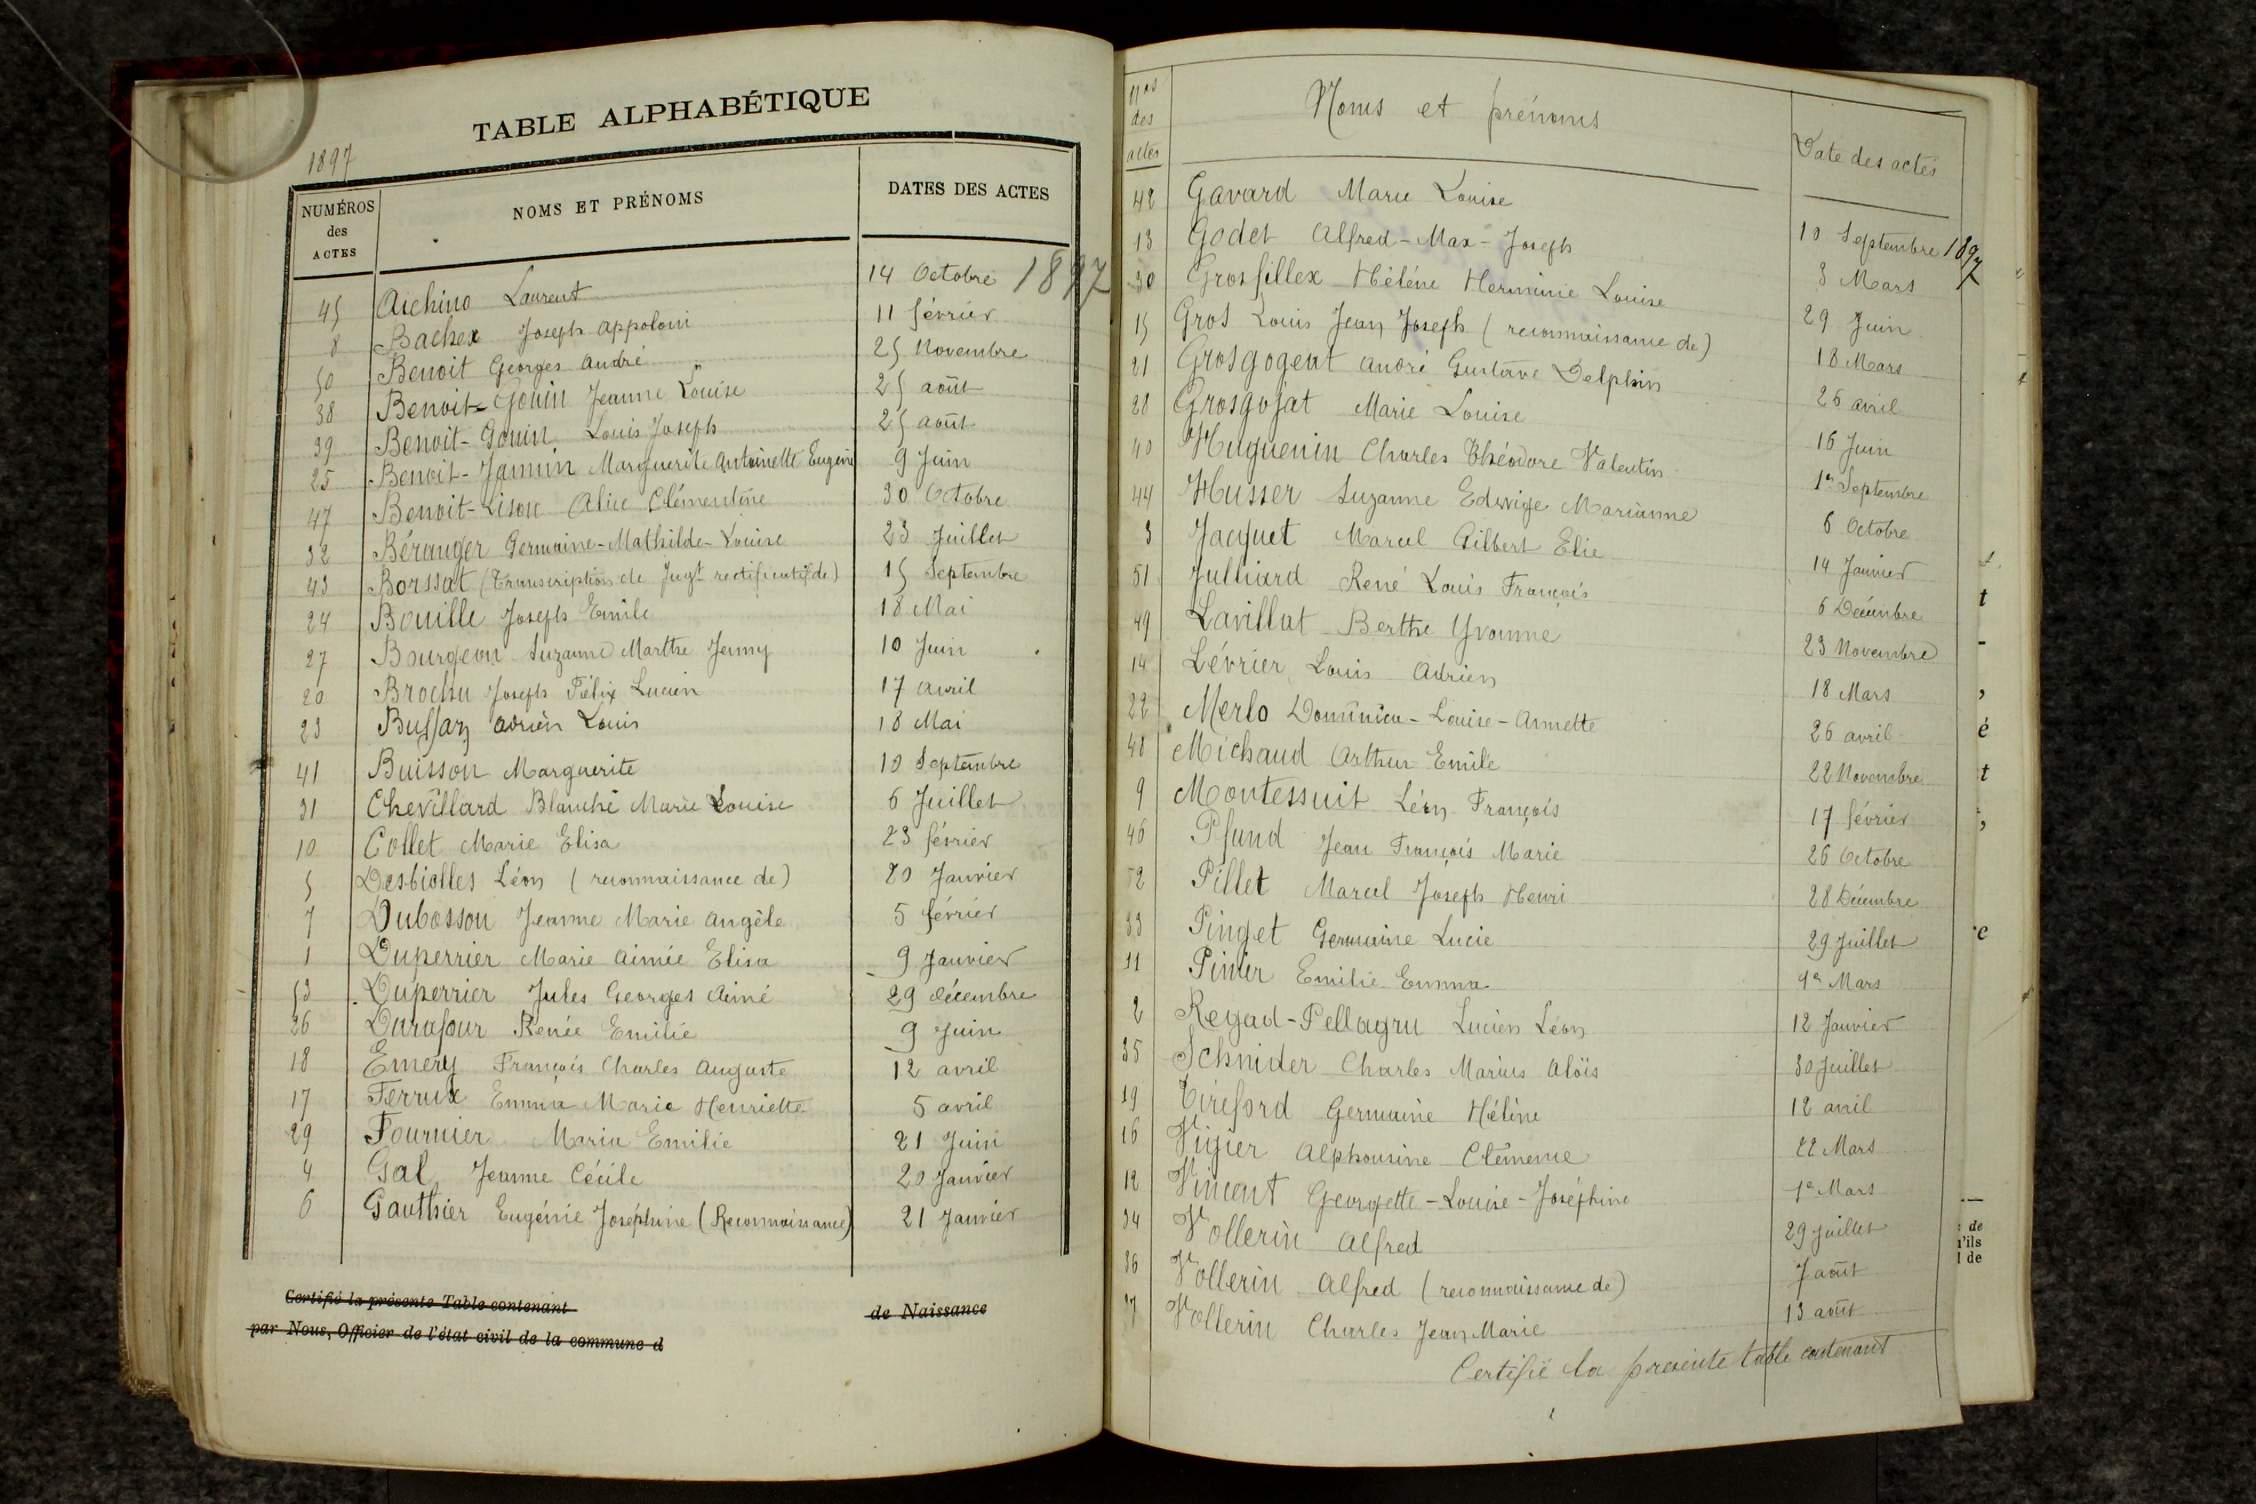 TABLE ALPHABÉTIQUE
1897
NUMÉROS des ACTES NOMS ET PRÉNOMS DATES DES ACTES
45 Aichino Laurent 14 Octobre 1897
8 Bachex Joseph Appoloni 11 février
50 Benoit Georges André 25 Novembre
38 Benoit-Gouin Jeanne Louise 25 août
39 Benoit-Gouin Louis Joseph 25 août
25 Benoit-Jannin Marguerite Antoinette Eugénie 9 Juin
47 Benoit-Lison Alice Clémentine 30 Octobre
32 Béranger Germaine-Mathilde-Louise 23 Juillet
43 Borssat (Transcription de Jugt rectificatif de) 15 Septembre
24 Bouille Joseph Emile 18 Mai
27 Bourgeon Suzanne Marthe Jenny 10 Juin
20 Brochu Joseph Félix Lucien 17 avril
23 Bussaz Adrien Louis 18 Mai
41 Buisson Marguerite 10 Septembre
31 Chevillard Blanche Marie Louise 6 Juillet
10 Collet Marie Elisa 23 février
5 Desbiolles Léon (reconnaissance de) 20 Janvier
7 Dubosson Jeanne Marie Angèle 5 février
1 Duperrier Marie Aimée Elisa 9 Janvier
53 Duperrier Jules Georges Aimé 29 décembre
26 Durafour Renée Emilie 9 Juin
18 Emery François Charles Auguste 12 avril
17 Ferrux Emma Marie Henriette 5 avril
29 Fournier Maria Emilie 21 Juin
4 Gal Jeanne Cécile 20 Janvier
6 Gauthier Eugénie Joséphine (Reconnaissance) 21 Janvier
Certifié la présente Table contenant de Naissance
par Nous, Officier de l'état civil de la commune d
Nos des actes Noms et prénoms Date des actes
42 Gavard Marie Louise 10 Septembre 1897
13 Godet Alfred-Max-Joseph 8 Mars
30 Grosfillex Hélène Herminie Louise 29 Juin
15 Gros Louis Jean Joseph (reconnaissance de) 18 Mars
21 Grosgogeat André Gustave Delphin 26 avril
28 Grosgojat Marie Louise 16 Juin
40 Huguenin Charles Théodore Valentin 1er Septembre
44 Husser Suzanne Edwige Marianne 6 Octobre
3 Jacquet Marcel Gilbert Elie 14 Janvier
51 Julliard René Louis François 6 Décembre
49 Lavillat Berthe Yvonne 23 Novembre
14 Lévrier Louis Adrien 18 Mars
22 Merlo Dominica-Louise-Annette 26 avril
48 Michaud Arthur Emile 22 Novembre
9 Montessuit Léon François 17 février
46 Pfund Jean François Marie 26 Octobre
52 Pillet Marcel Joseph Henri 28 Décembre
33 Pinget Germaine Lucie 29 Juillet
11 Pinier Emilie Emma 1er Mars
2 Regad-Pellagru Lucien Léon 12 Janvier
35 Schnider Charles Marius Aloïs 30 Juillet
19 Tireford Germaine Hélène 12 avril
16 Vigier Alphonsine Clémence 22 Mars
12 Vincent Georgette-Louise-Joséphine 1er Mars
34 Vollerin Alfred 29 Juillet
36 Vollerin Alfred (reconnaissance de) 7 août
37 Vollerin Charles Jean Marie 13 août
Certifié la présente table contenant
t
-
,
é
t
,
e
de
'ils
l de